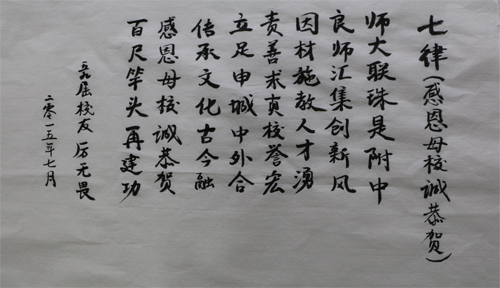 七律(感恩母校诚恭贺)
师大联珠是附中
良师汇集创新风
因材施教人才涌
责善求真校誉宏
立足申城中外合
传承文化古今融
感恩母校诚恭贺
百尺竿头再建功
届校友 厉无畏
二零一五年七月